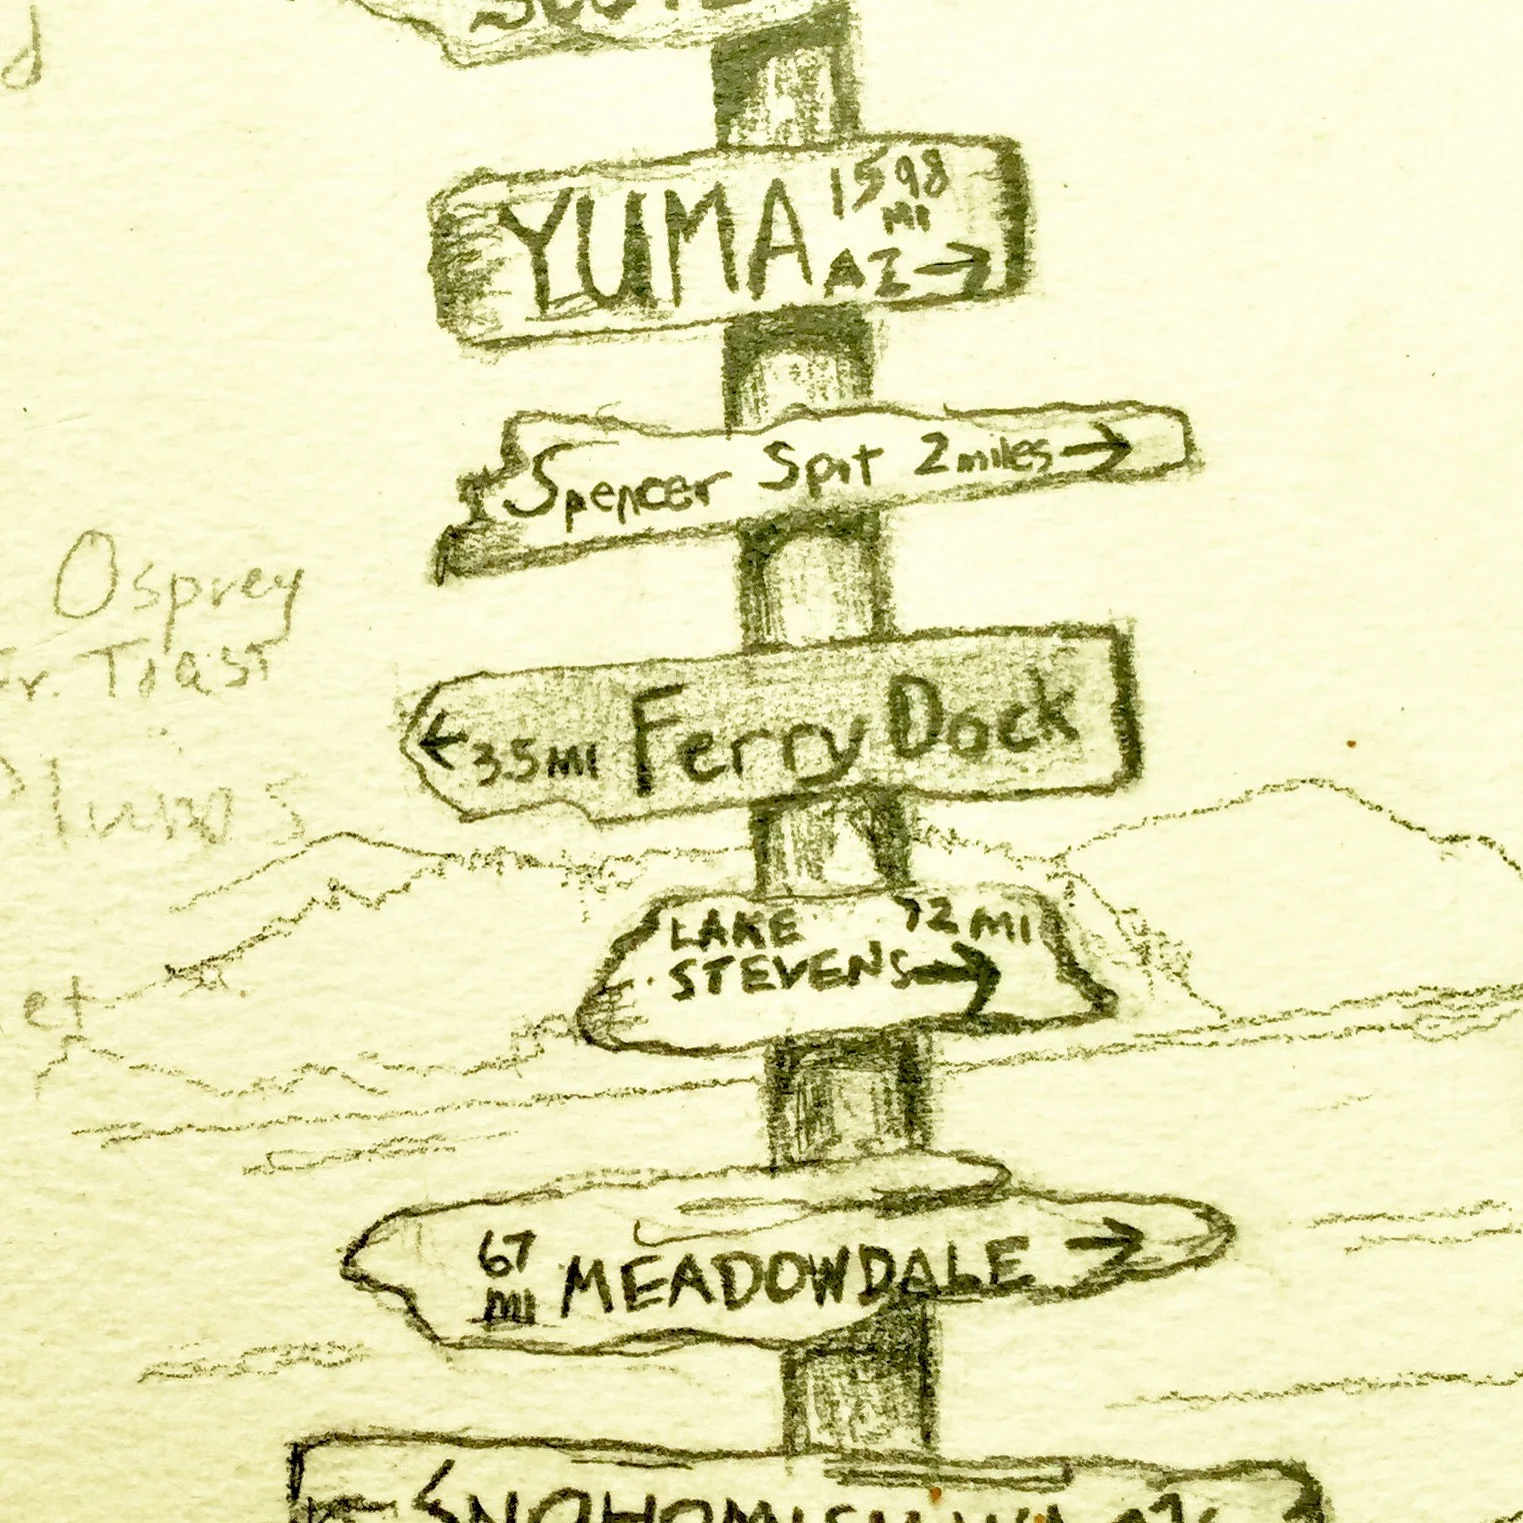 YUMA 1598
MI
AZ →
Spencer Spit 2 miles →
Osprey
Fr. Toast
← 3.5 MI Ferry Dock
Plums
LAKE 72 MI
STEVENS →
et
67
MI MEADOWDALE →
SNOHOMISH